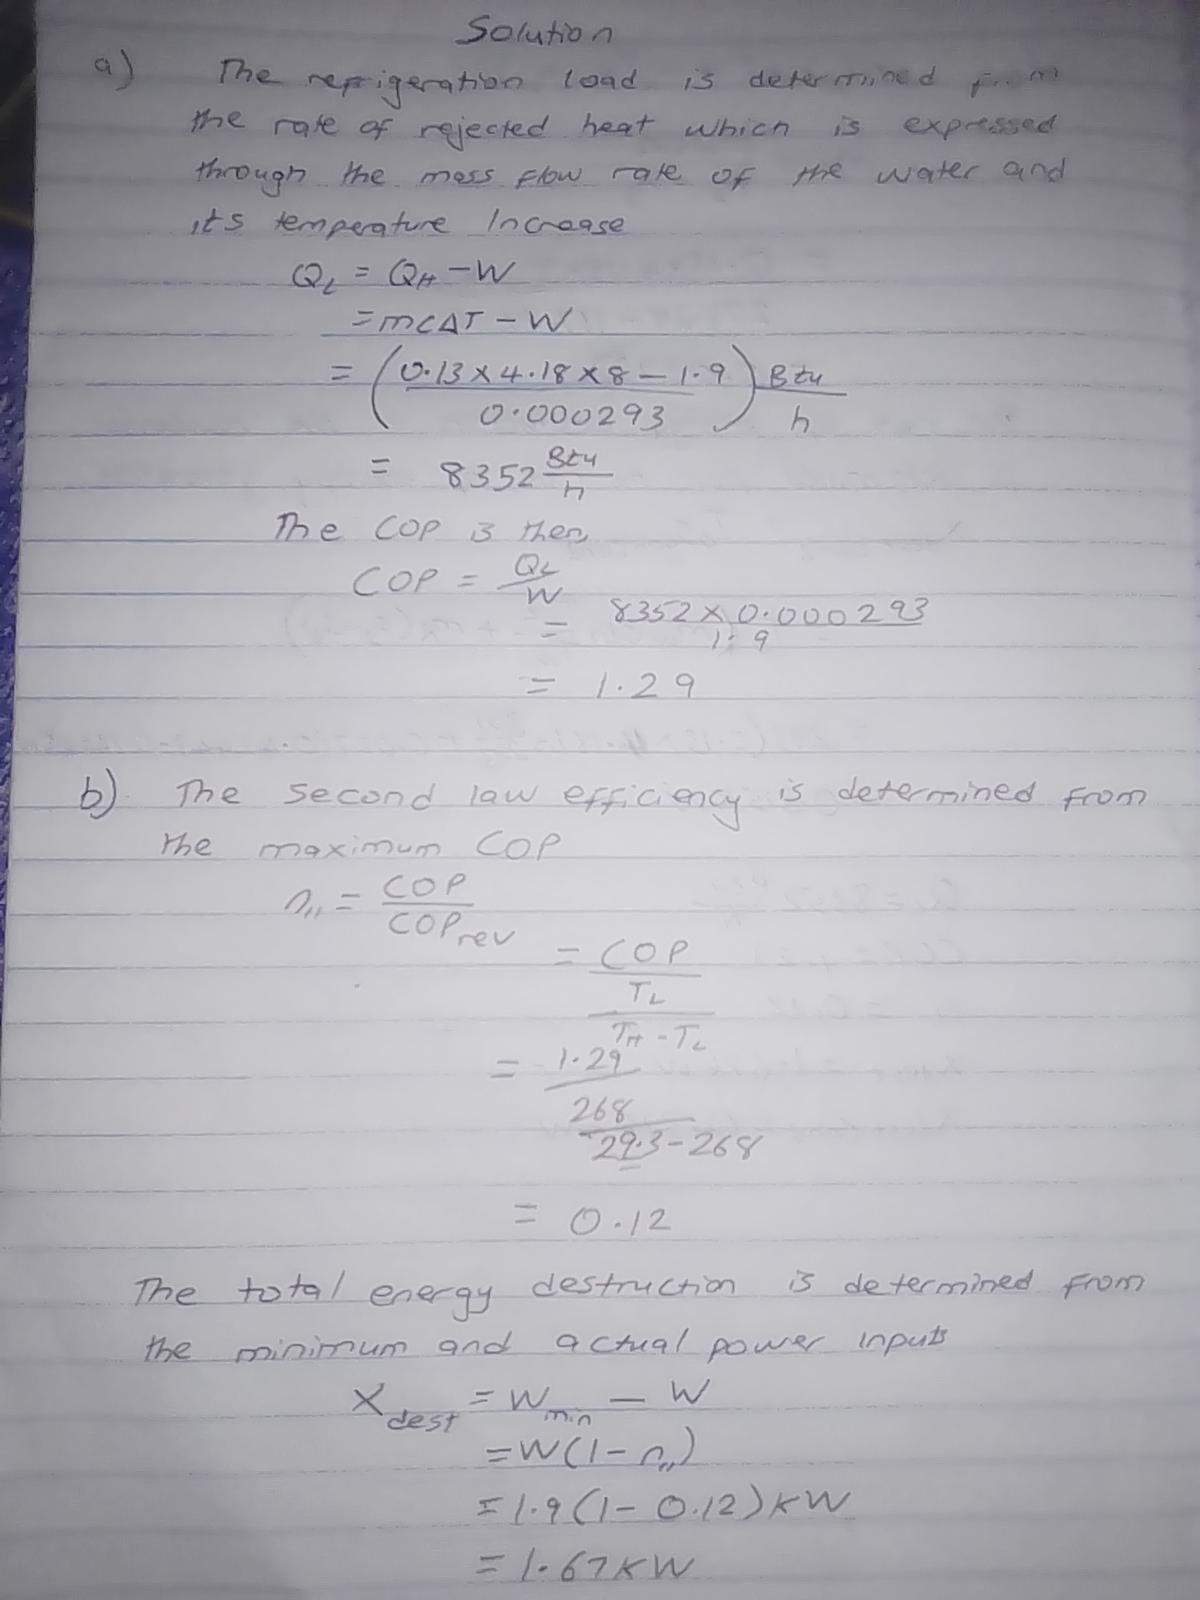 Solution
a) The refrigeration load is determined from
the rate of rejected heat which is expressed
through the mass flow rate of the water and
its temperature Increase
Q_L = Q_H - W
= mcΔT - W
= (0.13 × 4.18 × 8 - 1.9 / 0.000293) Btu/h
= 8352 Btu/h
The COP is then,
COP = Q_L/W
= 8352 × 0.000293 / 1.9
= 1.29
b) The second law efficiency is determined from
the maximum COP
η_II = COP/COP_rev
= COP / (T_L / (T_H - T_L))
= 1.29 / (268 / (29.3 - 268))
= 0.12
The total energy destruction is determined from
the minimum and actual power inputs
X_dest = W_min - W
= W(1 - η_II)
= 1.9(1 - 0.12)KW
= 1.67KW